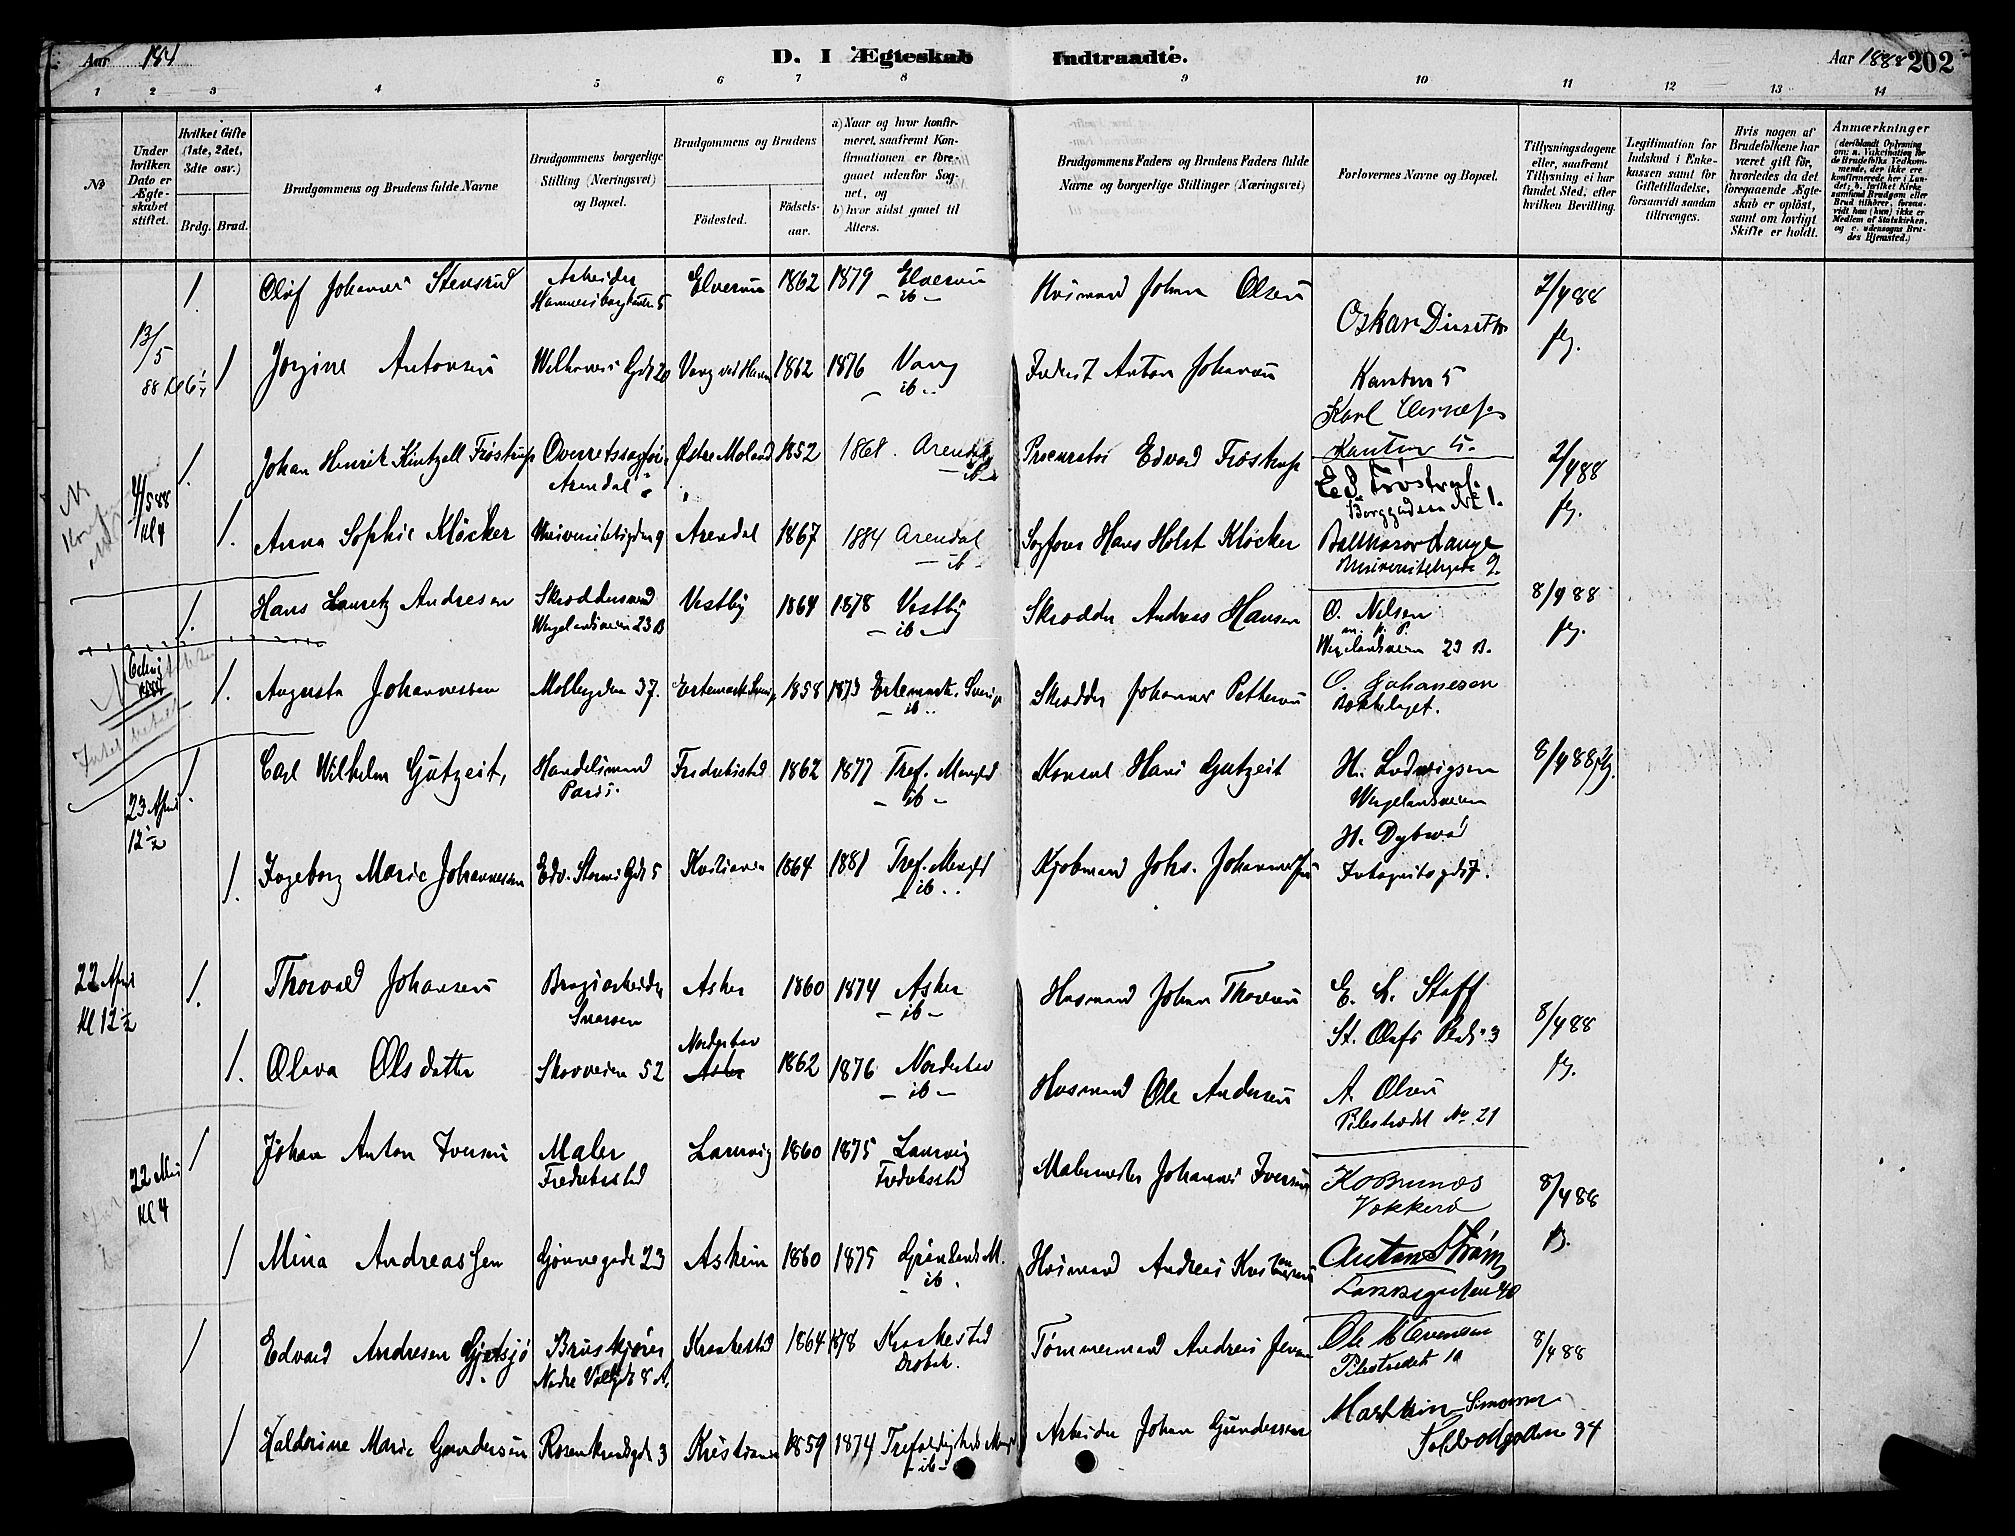 Aar 181 D. I Ægteskab Indtraadte. Aar 1888 202
1 2 3 4 5 6 7 8 9 10 11 12 13 14
No
Under hvilken Dato er Ægteskabet stiftet.
Hvilket Gifte (1ste, 2det, 3dte osv.)
Brdg. Brud.
Brudgommens og Brudens fulde Navne
Brudgommens borgerlige Stilling (Næringsvei) og Bopæl.
Brudgommens og Brudens
Födested. Födselsaar.
a) Naar og hvor konfirmeret, saafremt Konfirmationen er foregaaet udenfor Sognet, og
b) hvor sidst gaaet til Alters.
Brudgommens Faders og Brudens Faders fulde Navne og borgerlige Stillinger (Næringsvei)
Forlovernes Navne og Bopæl.
Tillysningsdagene eller, saafremt Tillysning ei har fundet Sted, efter hvilken Bevilling.
Legitimation for Indskud i Enkekassen samt for Giftetilladelse, forsaavidt saadan tiltrænges.
Hvis nogen af Brudefolkene har været gift før, hvorledes da det foregaaende Ægteskab er opløst, samt om lovligt Skifte er holdt.
Anmærkninger (deriblandt Oplysning om: a. Vakcination for de Brudefolks Vedkommende, der ikke ere konfirmerede her i Landet; b. hvilket Kirkesamfund Brudgom eller Brud tilhører, forsaavidt han (hun) ikke er Medlem af Statskirken, og c. udensogns Brudes Hjemsted.)
1. Olof Johannes Stensrud Arbeider Hammersborggaden 5 Elverum 1862 1879 Elverum - ib - Husmand Johan Olsen 2/4 88
13/5 88 Kl 6½ 1 Jorgine Antonsen Wilhelms Gd 20 Vang ved Hamar 1862 1876 Vang - ib - Anton Johansen Karl
1. Johan Henrik Kintzell Frøstrup Overretssagfører Arendal Østre Moland 1852 1868. Arendal - ib - Procurator Edvard Frøstrup Ed Frøstrup. Borggaden No 1. 2/4 88
4/5 88 Kl 4 1. Anna Sophie Kløcker Universitetsgaden 9 Arendal 1867 1884 Arendal - ib - Sagfører Hans Holst Kløcker Balthazar Lange Universitetsgade 9.
1. Hans Lauretz Andresen Skreddersvend Wergelandsveien 23 B Vestby 1864 1878 Vestby - ib - Skredder Andreas Hansen O. Nilsen Wergelandsveien 23 B. 8/4 88
1. Augusta Johannessen Møllergaden 37. Ertemark Sverig 1858 1873 Ertemark. Sverige - ib - Skredder Johannes Pettersen O. Johanesen Bakkehaget.
23 April 12½ 1. Carl Wilhelm Gutzeit, Handelsmand Paris. Fredrikstad 1862 1877 Tref. Menighd - ib - Konsul Hans Gutzeit H. Ludvigsen Wergelandsveien 8/4 88
1. Ingeborg Marie Johannessen Edv. Storms Gd 5 Kristiania 1864 1881 Tref. Menighd - ib - Kjøbmand Johs. Johannessen H. Dybwad
22 April Kl 12½ 1. Thorvald Johansen Brugsarbeider Asker 1860 1874 Asker - ib - Husmand Johan Thorsen E. L. Staff St. Olafs Plads 3 8/4 88
1. Olava Olsdatter Skovveien 52 Nordrehov 1862 1876 Nordrehov - ib - Husmand Ole Andersen A. Olsen Pilestrædet No 21
22 Mai Kl 4 1 Johan Anton Iversen Maler Fredriksstad Laurvig 1860 1875 Laurvig Fredriksstad Malermester Johannes Iversen Vækkerø 8/4 88
1 Mina Andreassen Grønnegade 23 Askim 1860 1875 Grønlands M. - ib - Husmand Andreas Anton Strøm
1 Edvard Andresen Gjetsjø Bruskjører Nedre Voldgd 8 A. Kraakestad 1864 1878 Kraakestad Drøbak. Tømmermand Andreas Jensen Pilestredet 10 8/4 88
1 Halderine Marie Gundersen Rosenkrandsgd 3 Kristiania 1859 1874 Trefoldigheds Mengd - ib - Arbeider Johan Gundersen Martin Simonsen Toldbodgaden 34